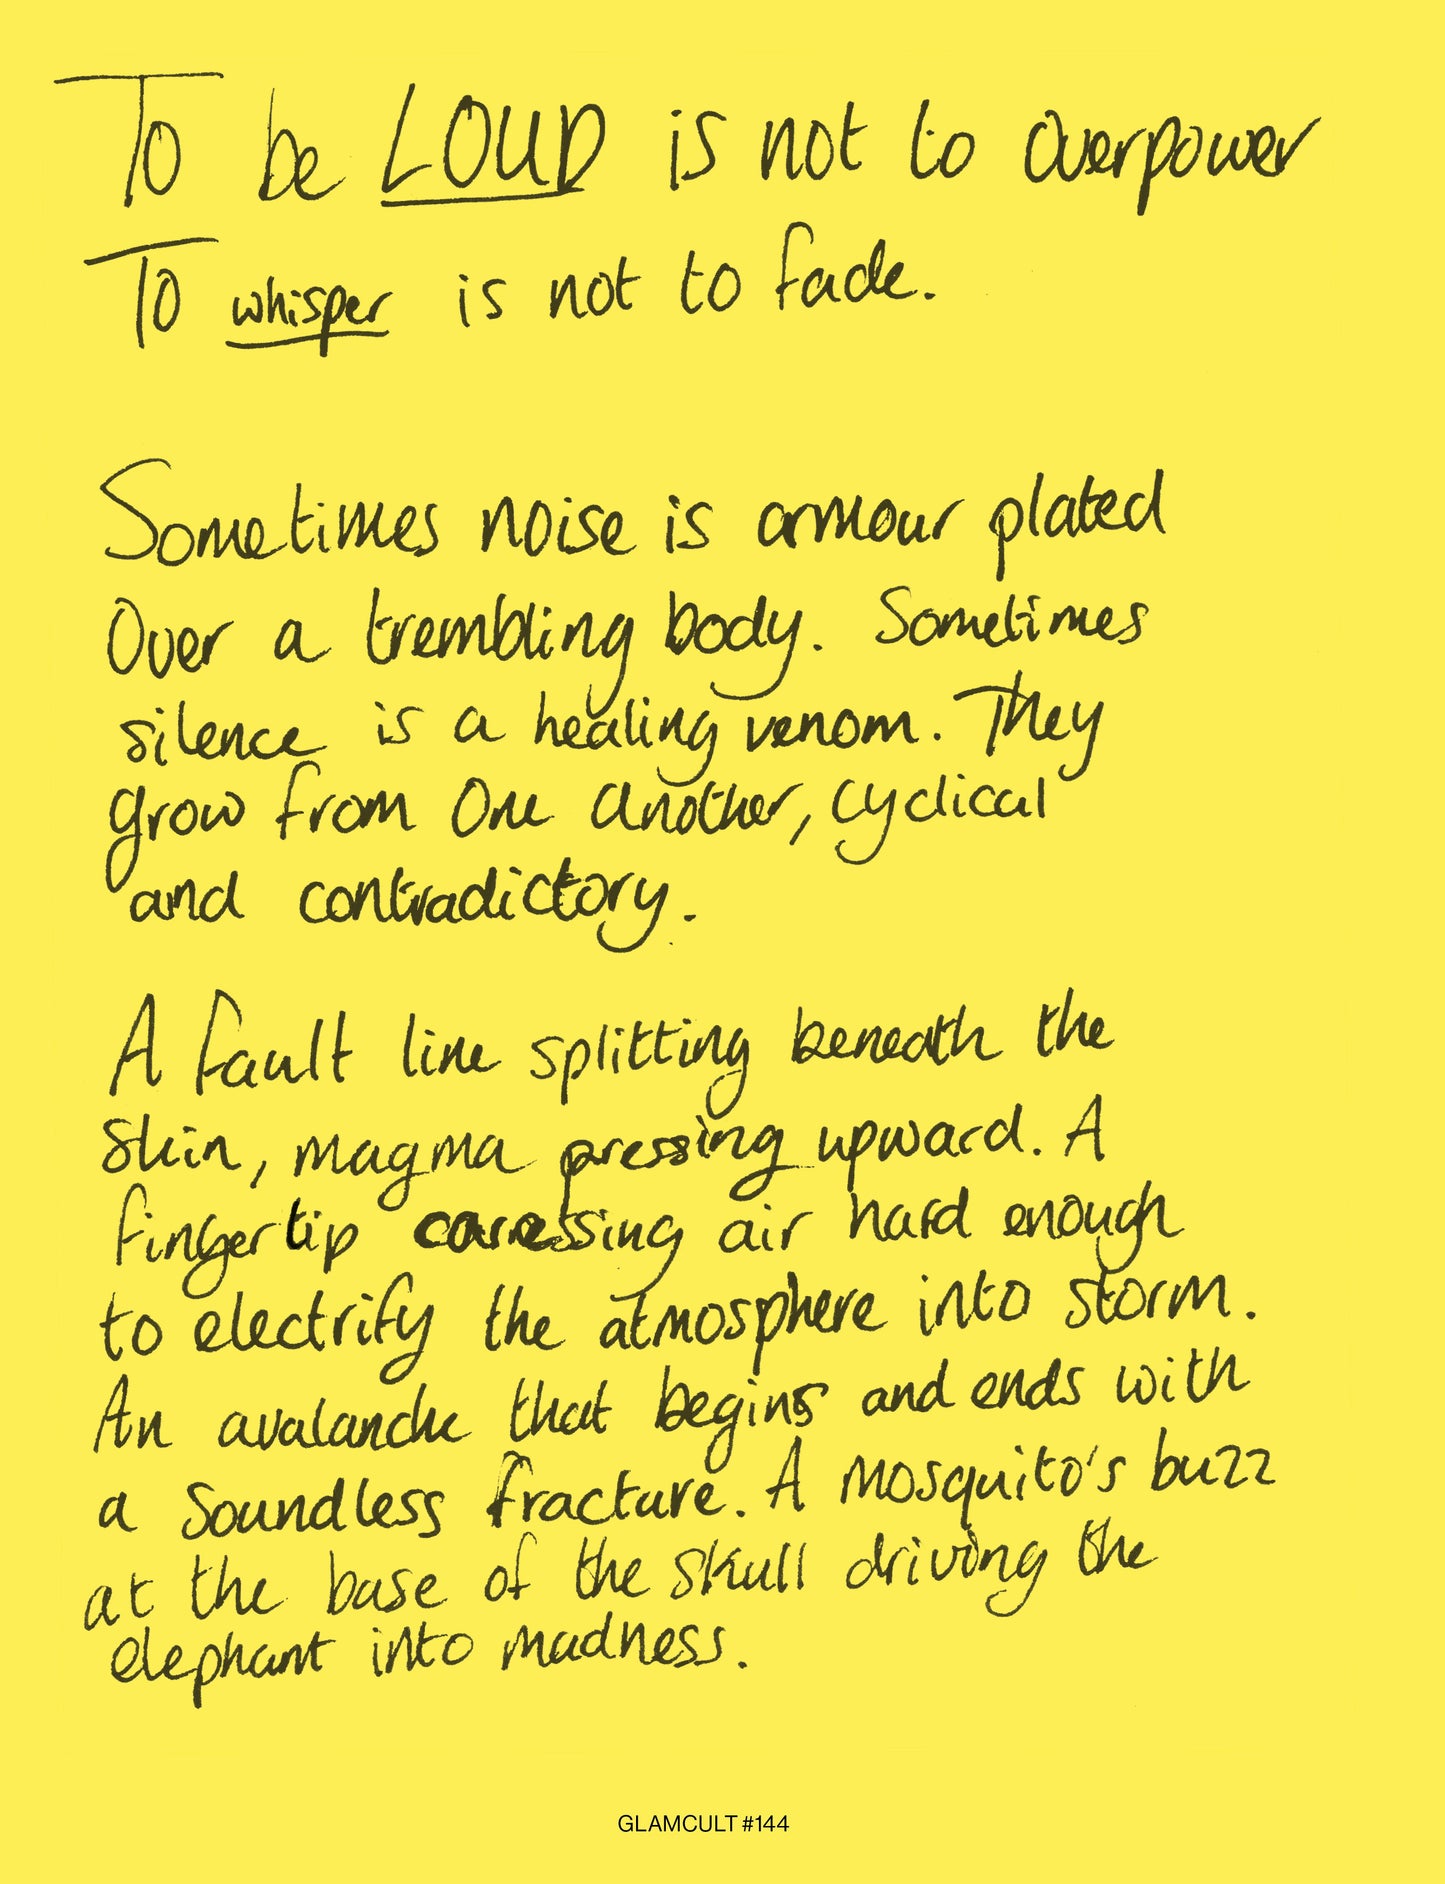 To be LOUD is not to overpower
To whisper is not to fade.
Sometimes noise is armour plated
Over a trembling body. Sometimes
silence is a healing venom. They
grow from One another, cyclical
and contradictory.
A fault line splitting beneath the
skin, magma pressing upward. A
fingertip caressing air hard enough
to electrify the atmosphere into storm.
An avalanche that begins and ends with
a soundless fracture. A mosquito's buzz
at the base of the skull driving the
elephant into madness.
GLAMCULT #144